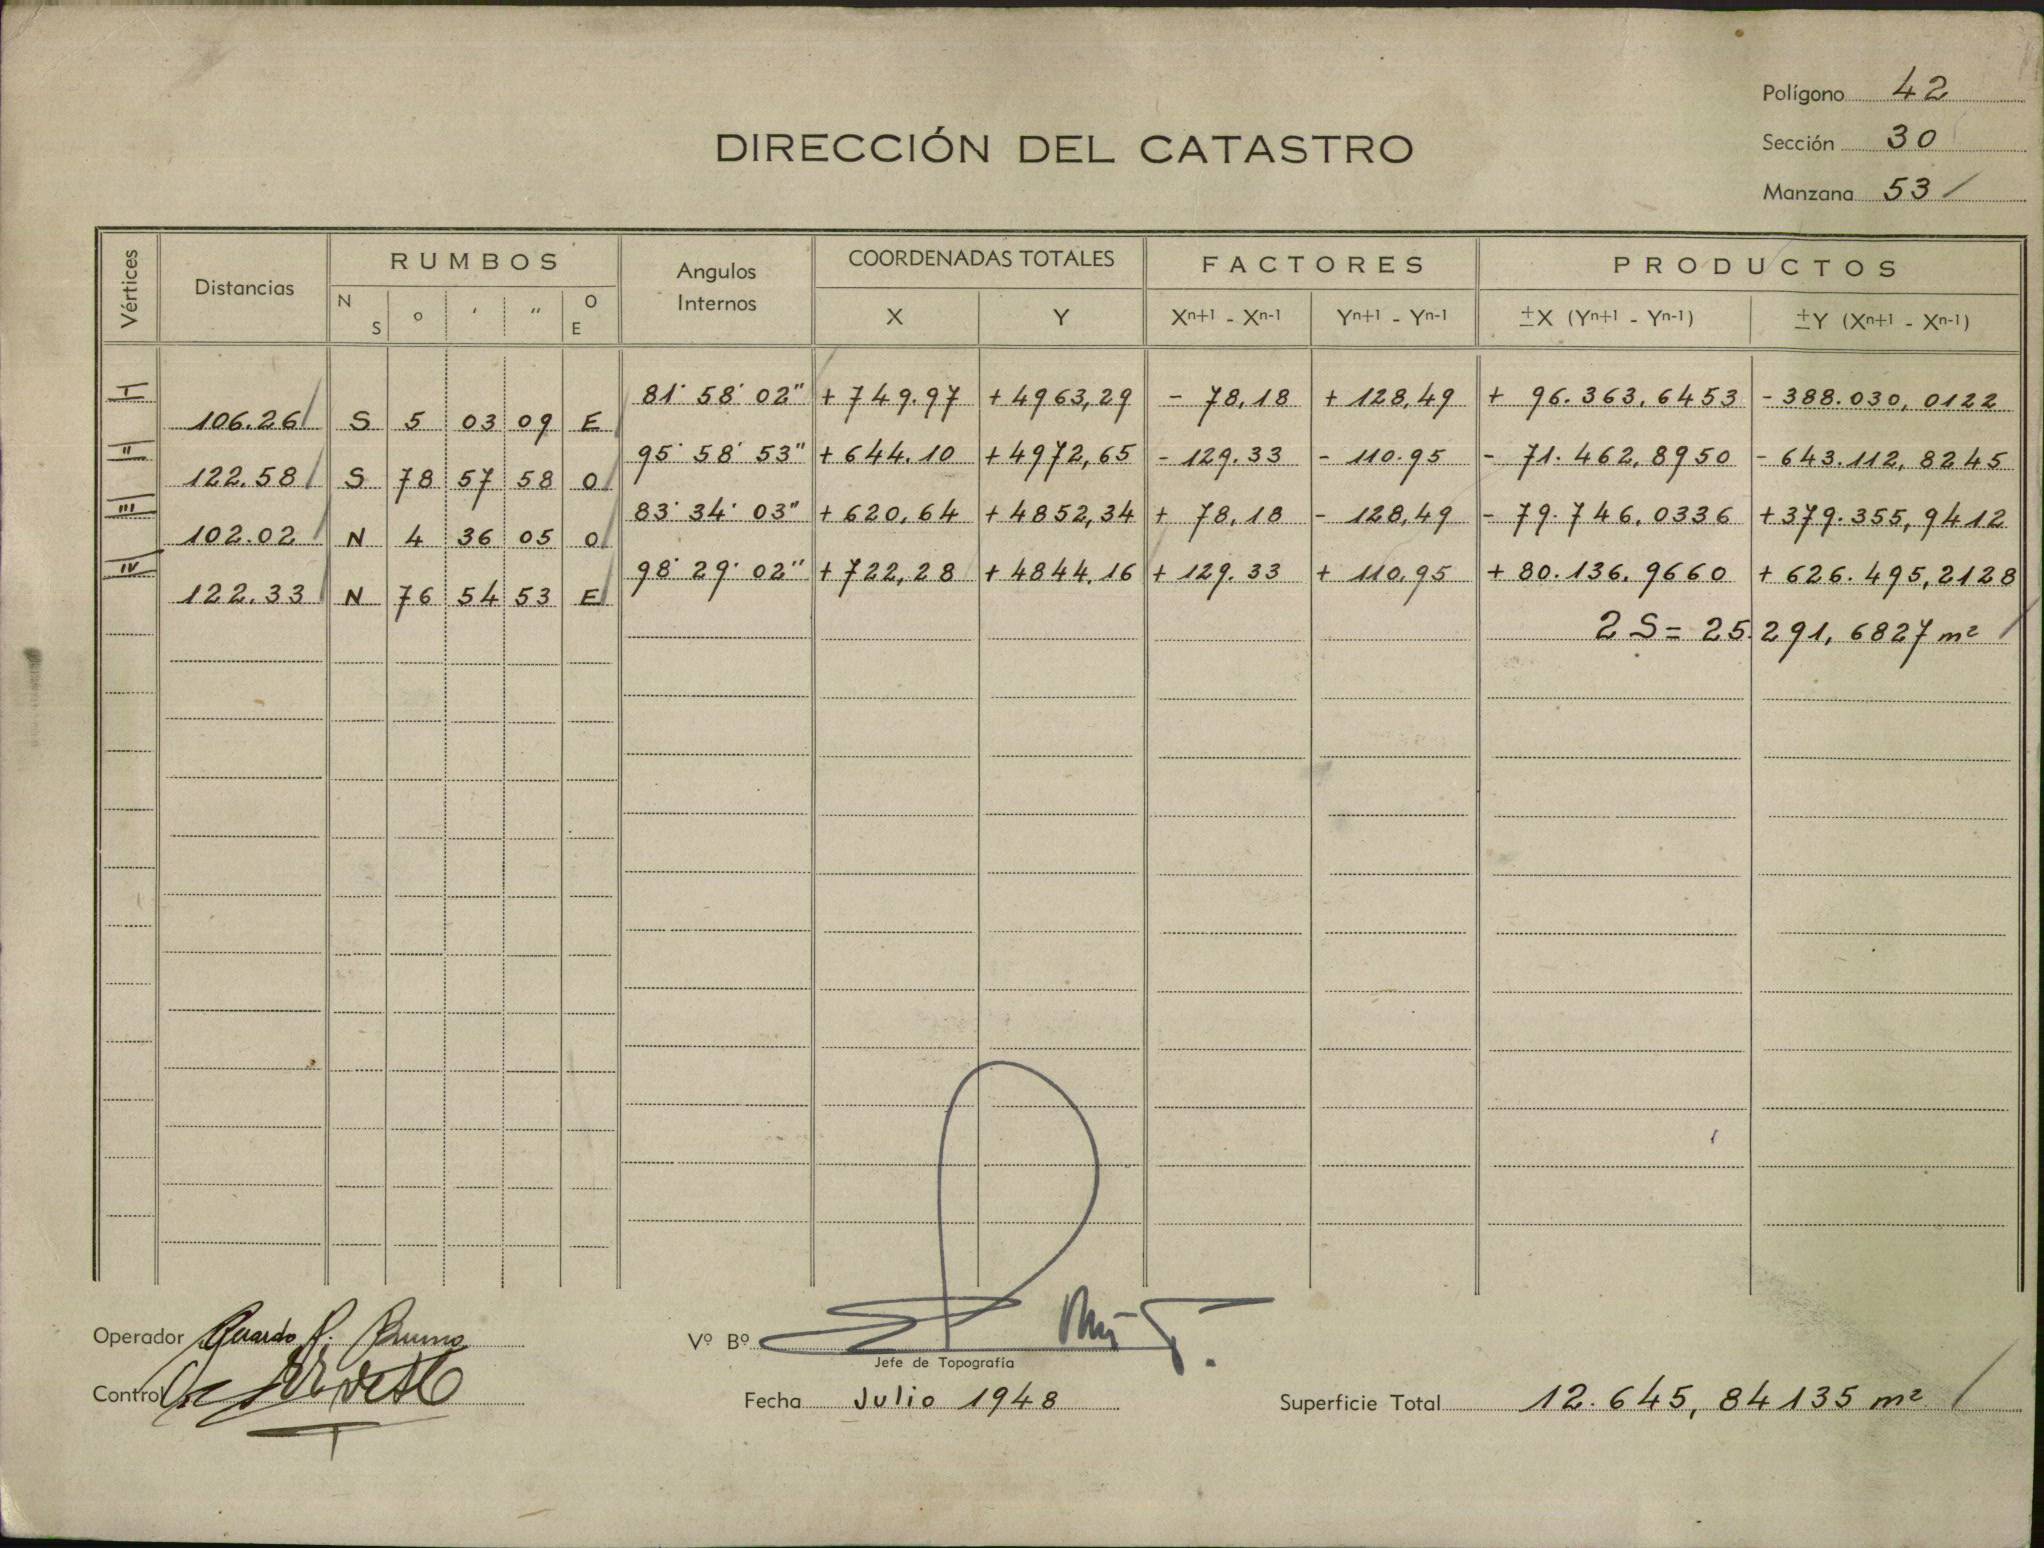 Polígono 42
Sección 30
Manzana 53
DIRECCIÓN DEL CATASTRO
Vértices Distancias RUMBOS Angulos Internos COORDENADAS TOTALES FACTORES PRODUCTOS
N S ° ' " O E X Y Xn+1 - Xn-1 Yn+1 - Yn-1 ±X (Yn+1 - Yn-1) ±Y (Xn+1 - Xn-1)
I 81° 58' 02" + 749.97 + 4963,29 - 78,18 + 128,49 + 96.363,6453 - 388.030,0122
106.26 S 5 03 09 E
II 95° 58' 53" + 644.10 + 4972,65 - 129.33 - 110.95 - 71.462,8950 - 643.112,8245
122.58 S 78 57 58 O
III 83° 34' 03" + 620,64 + 4852,34 + 78,18 - 128,49 - 79.746,0336 + 379.355,9412
102.02 N 4 36 05 O
IV 98° 29' 02" + 722,28 + 4844.16 + 129.33 + 110,95 + 80.136.9660 + 626.495,2128
122.33 N 76 54 53 E
2 S = 25.291,6827 m²
Operador Gerardo R. Bruno
Vº Bº
Jefe de Topografía
Control
Fecha Julio 1948
Superficie Total 12.645,84135 m²